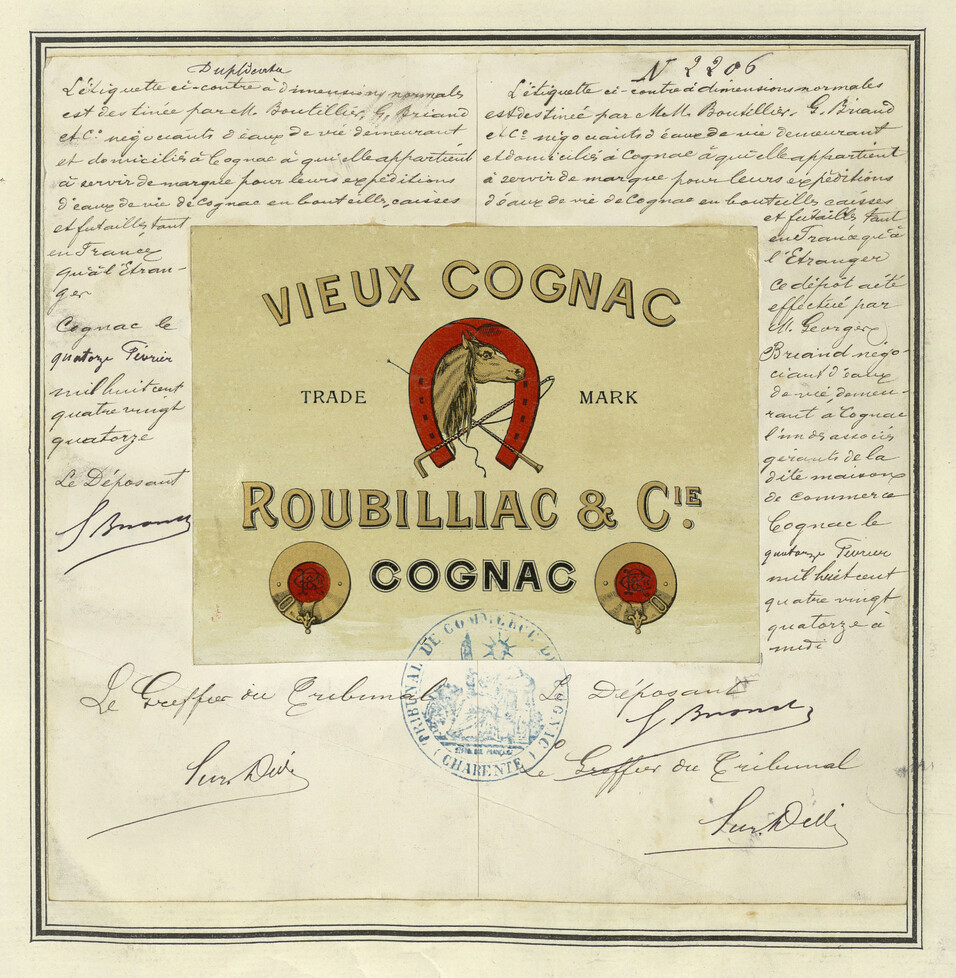 Duplicata
L'étiquette ci-contre à dimensions normales
est destinée par M. Boutillier, G. Briand
et Cie négociants d'eaux de vie demeurant
et domiciliés à Cognac à qui elle appartient
à servir de marque pour leurs expéditions
d'eaux de vie de Cognac en bouteilles, caisses
et futailles tant
en France
qu'à l'Etran-
ger
Cognac le
quatorze Février
mil huit cent
quatre vingt
quatorze
Le Déposant
G Briand
N 2206
L'étiquette ci-contre à dimensions normales
est destinée par M.M. Boutillier. G. Briand
et Cie négociants d'eaux de vie demeurant
et domiciliés à Cognac à qui elle appartient
à servir de marque pour leurs expéditions
d'eaux de vie de Cognac en bouteilles caisses
et futailles tant
en France qu'à
l'Etranger
Ce dépôt a été
effectué par
M. Georges
Briand négo-
ciant d'eaux
de vie, demeu-
rant à Cognac
l'un des associés
gérants de la
dite maison
de commerce
Cognac le
quatorze Février
mil huit cent
quatre vingt
quatorze à
midi
VIEUX COGNAC
TRADE MARK
ROUBILLIAC & CIE.
COGNAC
TRIBUNAL DE COMMERCE DE COGNAC
(CHARENTE)
Le Greffier du Tribunal
Le Déposant
G Briand
Le Greffier du Tribunal